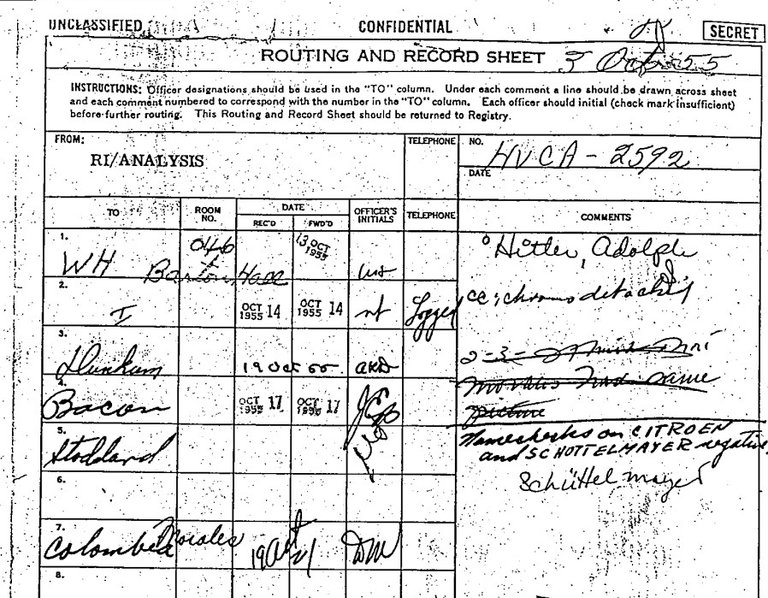 UNCLASSIFIED CONFIDENTIAL SECRET
ROUTING AND RECORD SHEET 3 Oct 55
INSTRUCTIONS: Officer designations should be used in the "TO" column. Under each comment a line should be drawn across sheet
and each comment numbered to correspond with the number in the "TO" column. Each officer should initial (check mark insufficient)
before further routing. This Routing and Record Sheet should be returned to Registry.
FROM:
RI/ANALYSIS
TELEPHONE
NO.
HVCA-2592
DATE
TO
ROOM NO.
DATE
REC'D
FWD'D
OFFICER'S INITIALS
TELEPHONE
COMMENTS
1.
WH
Barton Hall
13 OCT 1955
Hitler, Adolph
2.
I
OCT 14 1955
OCT 14 1955
3.
Dunham
19 Oct 55
AKD
4.
Bacon
OCT 17 1955
OCT 17 1955
5.
Stoddard
Namechecks on CITROEN
and SCHOTTELMAYER negative
Schüttelmayer
6.
7.
Colombia
Morales
8.